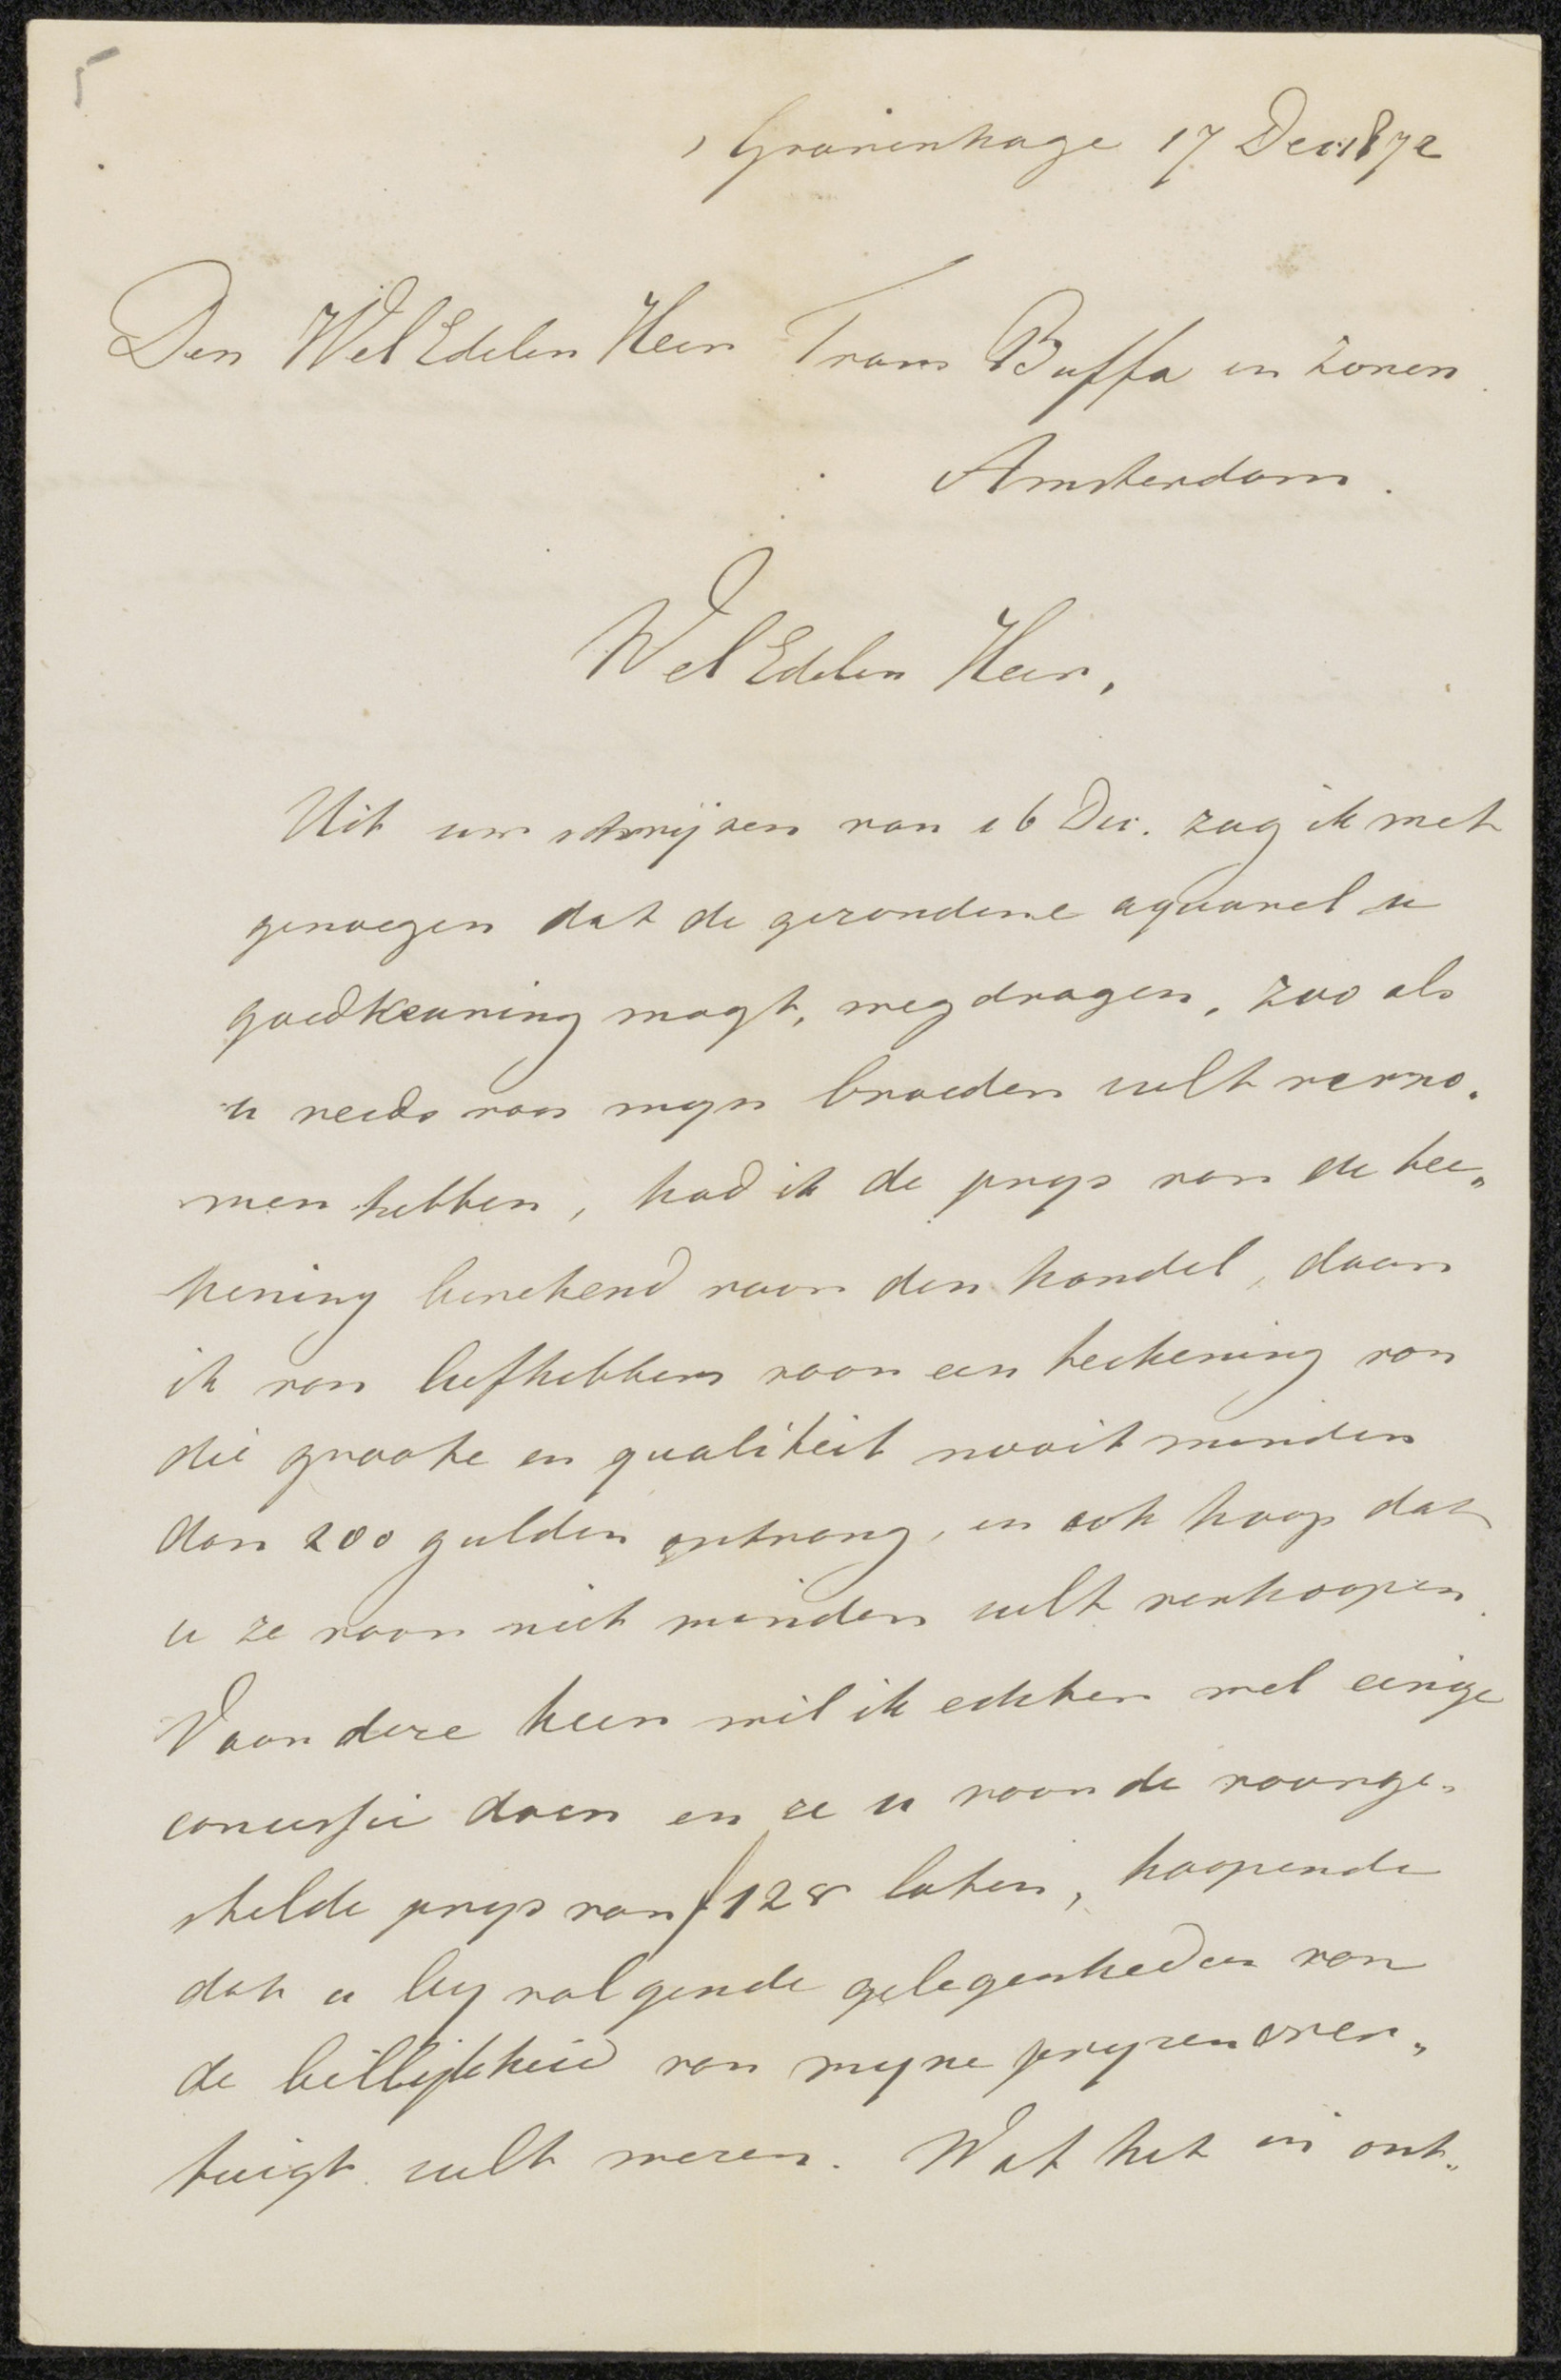 5
's Gravenhage 17 Dec 1872
Den WelEdelen Heer Frans Buffa en Zonen
Amsterdam.
WelEdelen Heer,
Uit uw schrijven van 16 Dec. zag ik met
genoegen dat de gezondene aquarel u
goedkeuring mogt, wegdragen, zoo als
u reeds van myn broeder zult verno„
men hebben, had ik de prys van de tee„
kening berekend voor den handel, daar
ik van liefhebbers voor een teekening van
die groote en qualiteit nooit minder
dan 200 gulden ontvang, en ook hoop dat
u ze voor niet minder zult verkoopen.
Voor deze keer wil ik echter wel eenige
concessie doen en ze u voor de voorge„
stelde prys van f 128 laten, hoopende
dat u by volgende gelegenheden van
de billijkheid van myne pryzen over„
tuigt zult wezen. Wat het in ont„